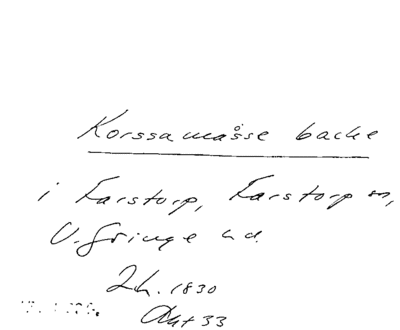 Korssamåsse backe
i Farstorp, Farstorp sn,
V. Göinge hd.
Lh. 1830
Akt 33